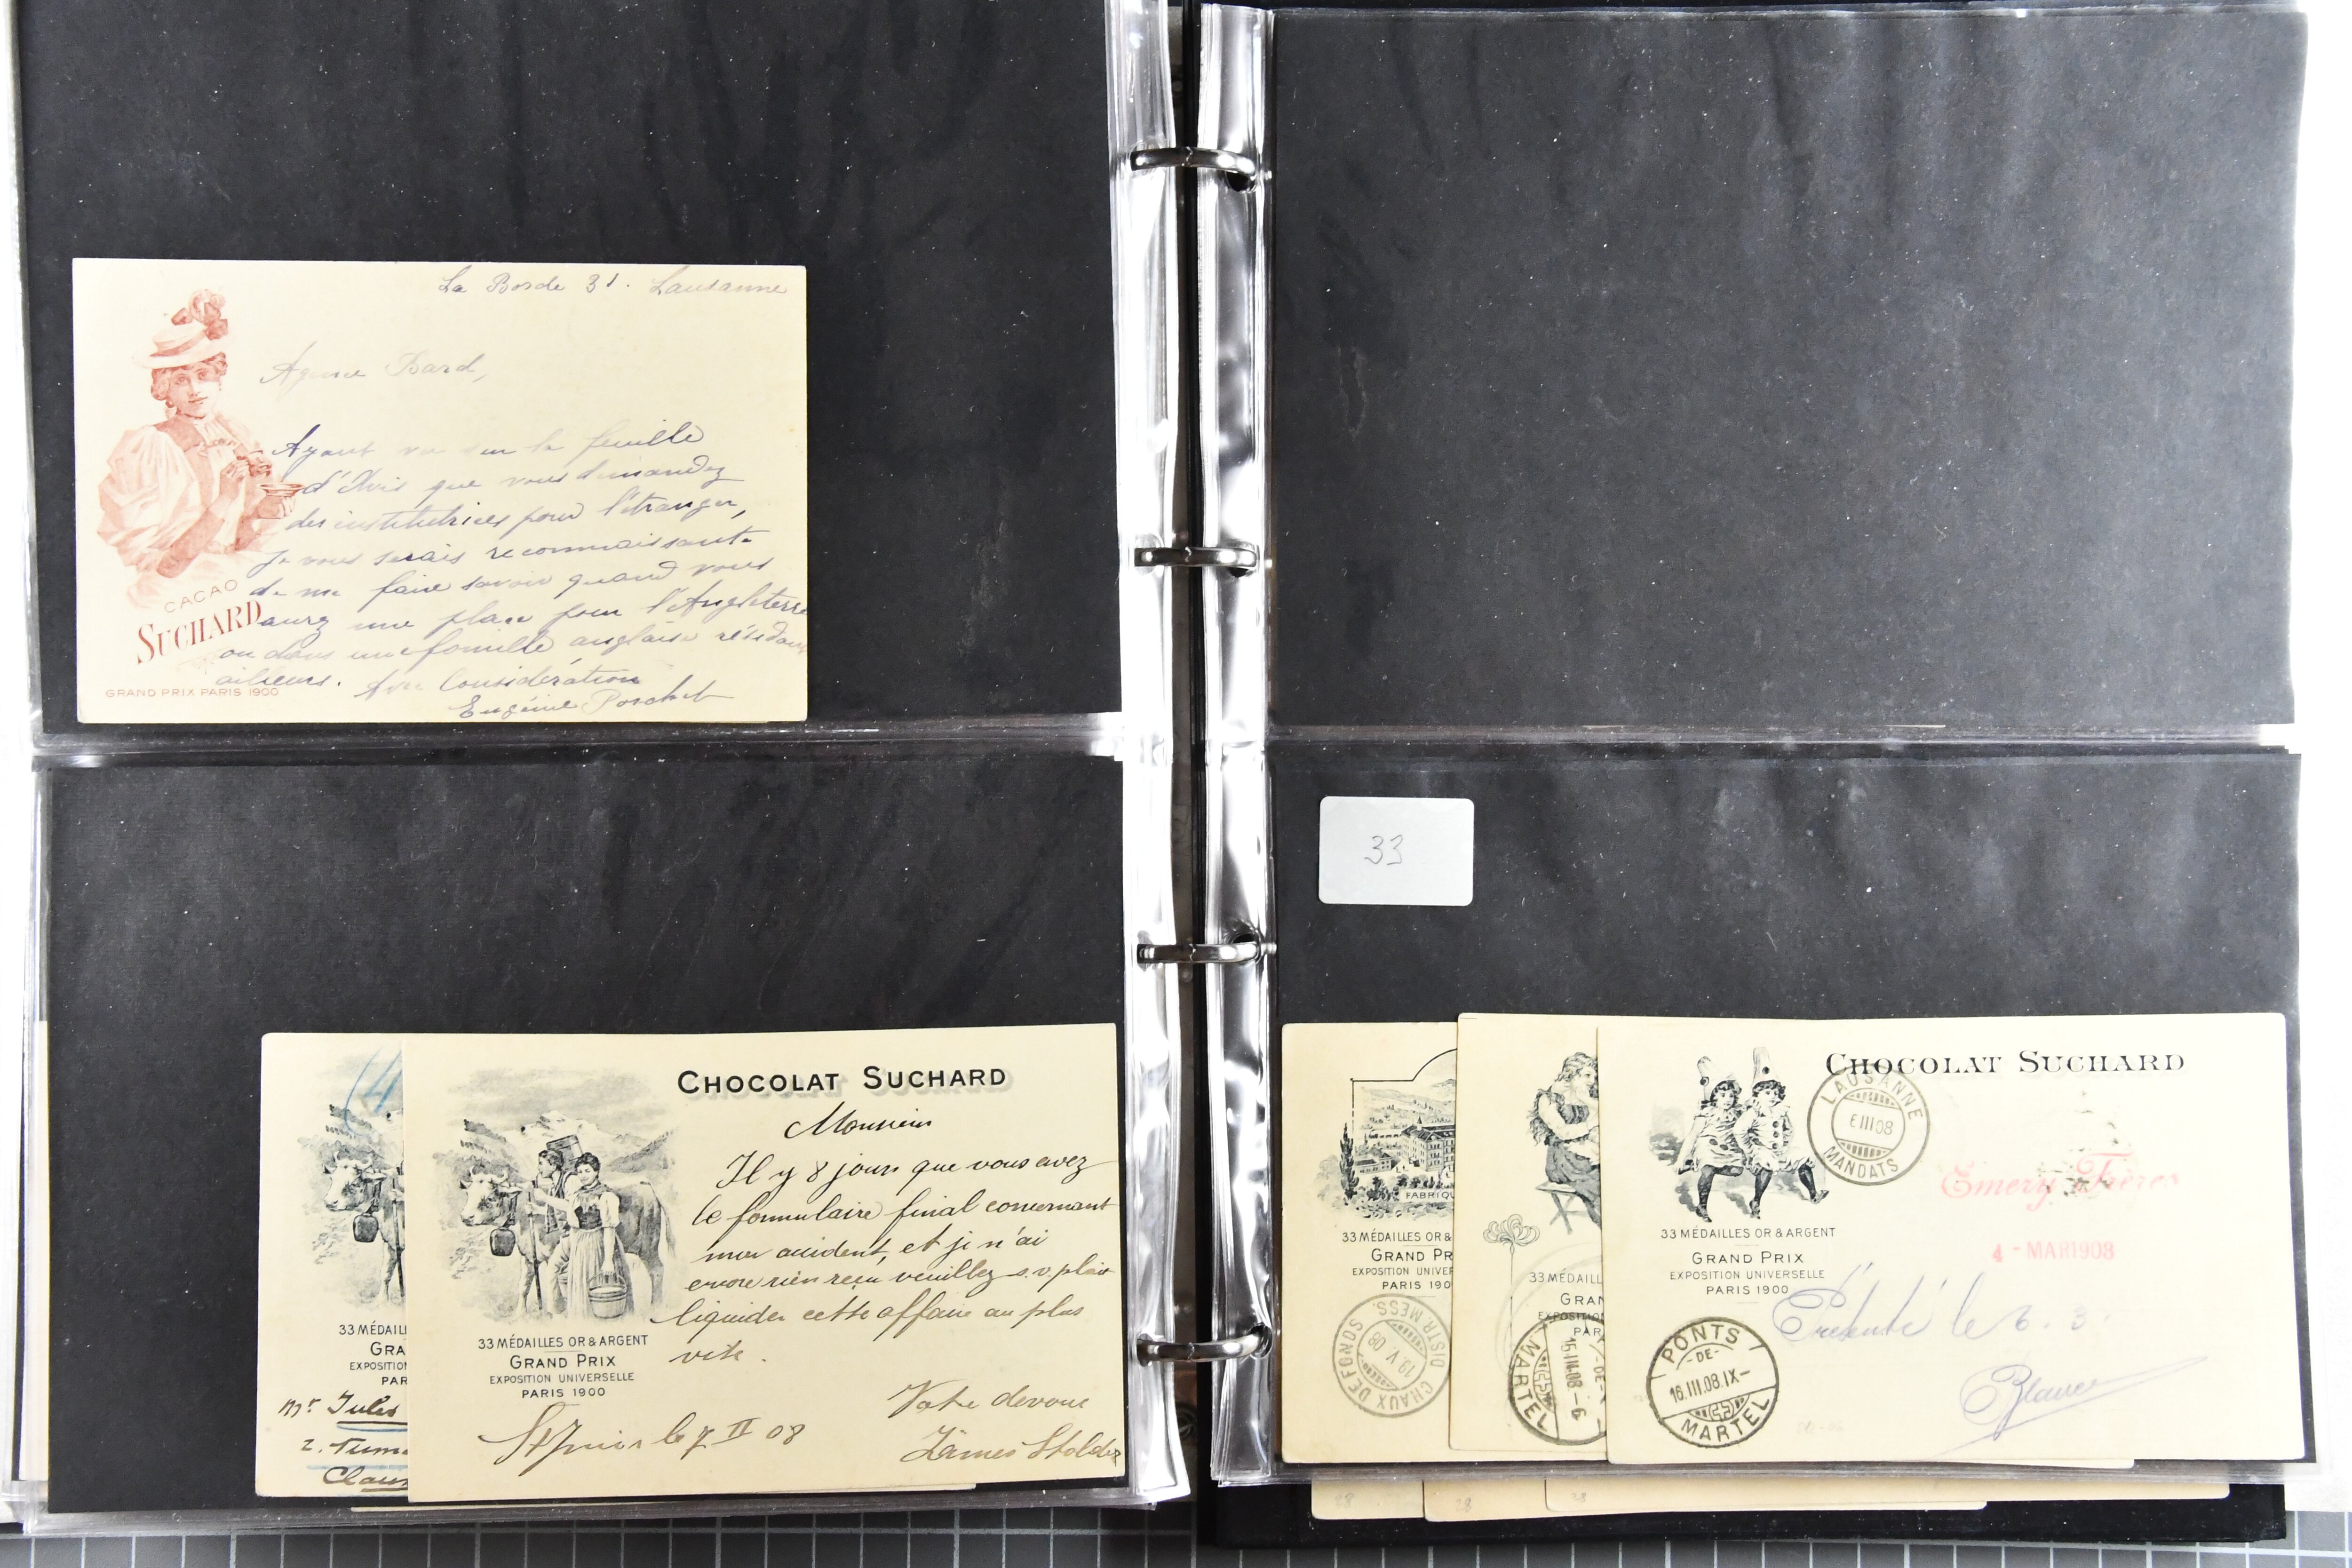 La Borde 31. Lausanne
Agence Bard,
Ayant vu sur la feuille
d'Avis que vous demandez
des institutrices pour l'étranger,
je vous serais reconnaissante
de me faire savoir quand vous
aurez une place pour l'Angleterre
ou dans une famille anglaise résidant
ailleurs. Avec Considération
Eugénie Porchet
CACAO
SUCHARD
GRAND PRIX PARIS 1900
33 MÉDAILL
GRA
EXPOSITION
PAR
Mr Jules
CHOCOLAT SUCHARD
Monsieur
Il y 8 jours que vous avez
le formulaire final concernant
mon accident, et je n'ai
encore rien reçu veuillez s.v.plait
liquider cette affaire au plus
vite.
Votre devoué
James Stolder
St Imier le 7 II 08
33 MÉDAILLES OR & ARGENT
GRAND PRIX
EXPOSITION UNIVERSELLE
PARIS 1900
33
FABRIQU
33 MÉDAILLES OR &
GRAND PR
EXPOSITION UNIVER
PARIS 190
CHAUX DE FONDS
DISTR MESS.
19 V 08
33 MÉDAILL
GRAN
EXPOSITION
PAR
-DE-
MARTEL
15.III.08-6
CHOCOLAT SUCHARD
LAUSANNE
6 III 08
MANDATS
Emery Frères
4 - MAR 1908
33 MÉDAILLES OR & ARGENT
GRAND PRIX
EXPOSITION UNIVERSELLE
PARIS 1900
Présenté le 6. 3.
PONTS
-DE-
16.III.08.IX-
MARTEL
28
28
28